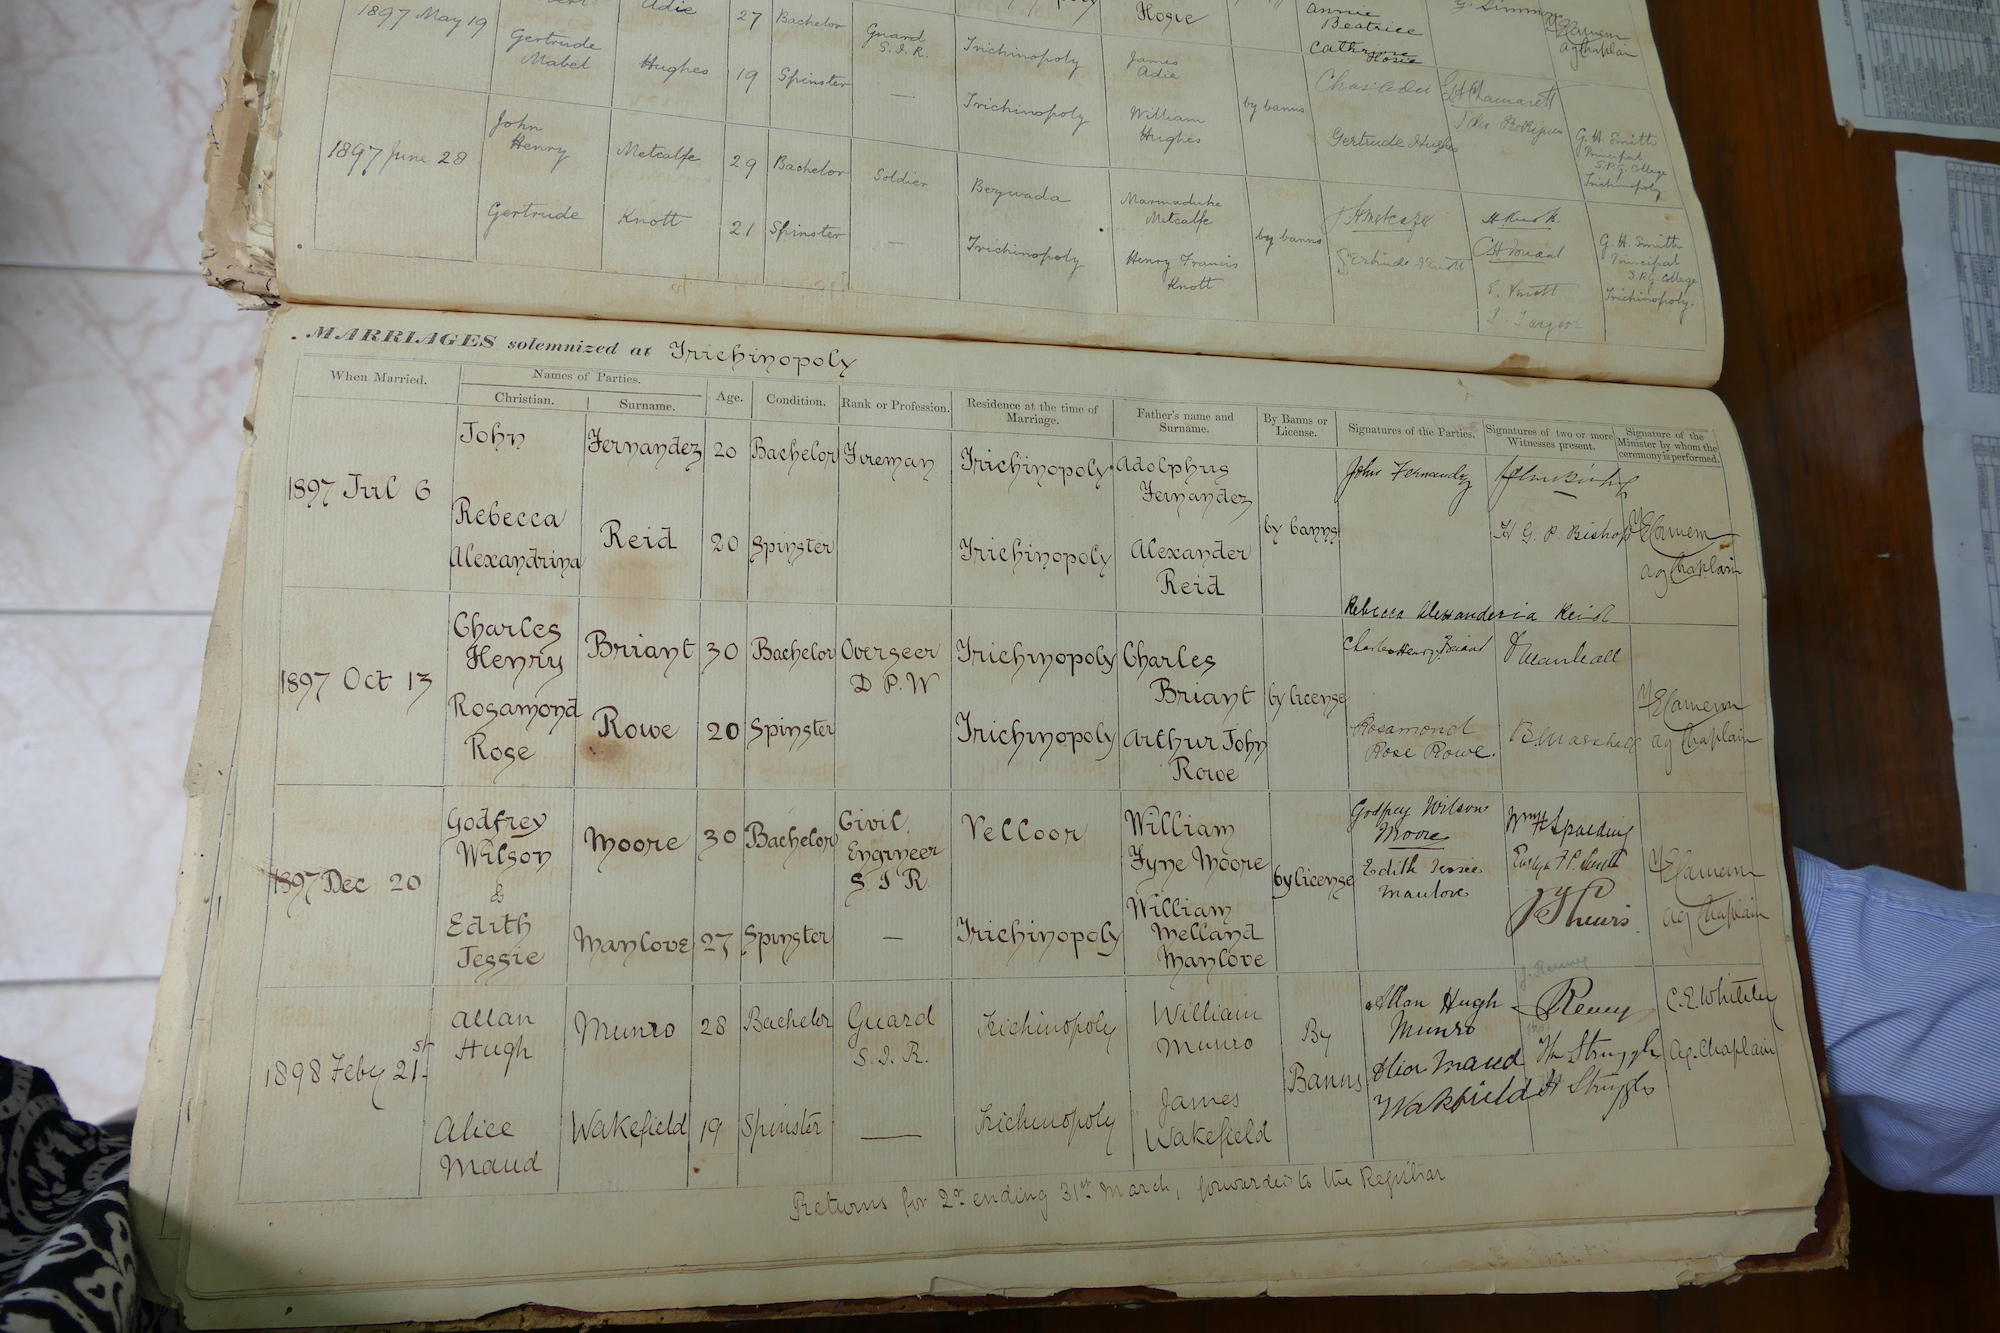 Adie 27 Bachelor Guard S.I.R. Trichinopoly James Adie
1897 May 19
Hosie
Annie
Beatrice
Cathrine
Hosie
G. Simmons
Ag Chaplain
Gertrude Mabel Hughes 19 Spinster — Trichinopoly William Hughes by banns Gertrude Hughes
G. H. Smith
Principal
S.P.G. College
Trichinopoly
1897 June 28 John Henry Metcalfe 29 Bachelor Soldier Bezwada Marmaduke Metcalfe by banns
Gertrude Knott 21 Spinster — Trichinopoly Henry Francis Knott
G. H. Smith
Principal
S.P.G. College
Trichinopoly.
MARRIAGES solemnized at Trichinopoly
When Married. Names of Parties. Age. Condition. Rank or Profession. Residence at the time of Marriage. Father's name and Surname. By Banns or License. Signatures of the Parties. Signatures of two or more Witnesses present. Signature of the Minister by whom the ceremony is performed.
Christian. Surname.
1897 Jul 6 John Fernandez 20 Bachelor Fireman Trichinopoly Adolphus Fernandez by banns John Fernandez
Rebecca Alexandrina Reid 20 Spinster Trichinopoly Alexander Reid H G. P. Bishop
Ag Chaplain
Rebecca Alexanderia Reid
1897 Oct 13 Charles Henry Briant 30 Bachelor Overseer D P. W Trichinopoly Charles Briant by license Charles Henry Briant
Rosamond Rose Rowe 20 Spinster Trichinopoly Arthur John Rowe Rosamond Rose Rowe.
Ag Chaplain
1897 Dec 20 Godfrey Wilson Moore 30 Bachelor Civil Engineer S I R Velloor William Fyne Moore by license Godfrey Wilson Moore Wm H Spalding
&
Edith Jessie Manlove 27 Spinster — Trichinopoly William Melland Manlove Edith Jessie Manlove
Ag Chaplain
1898 Feby 21st Allan Hugh Munro 28 Bachelor Guard S. I. R. Trichinopoly William Munro By Banns Allan Hugh Munro J. Renny C. E. Whiteley
Ag. Chaplain
Alice Maud Wakefield 19 Spinster — Trichinopoly James Wakefield Alice Maud Wakefield
Returns for 2r ending 31st March, forwarded to the Registrar